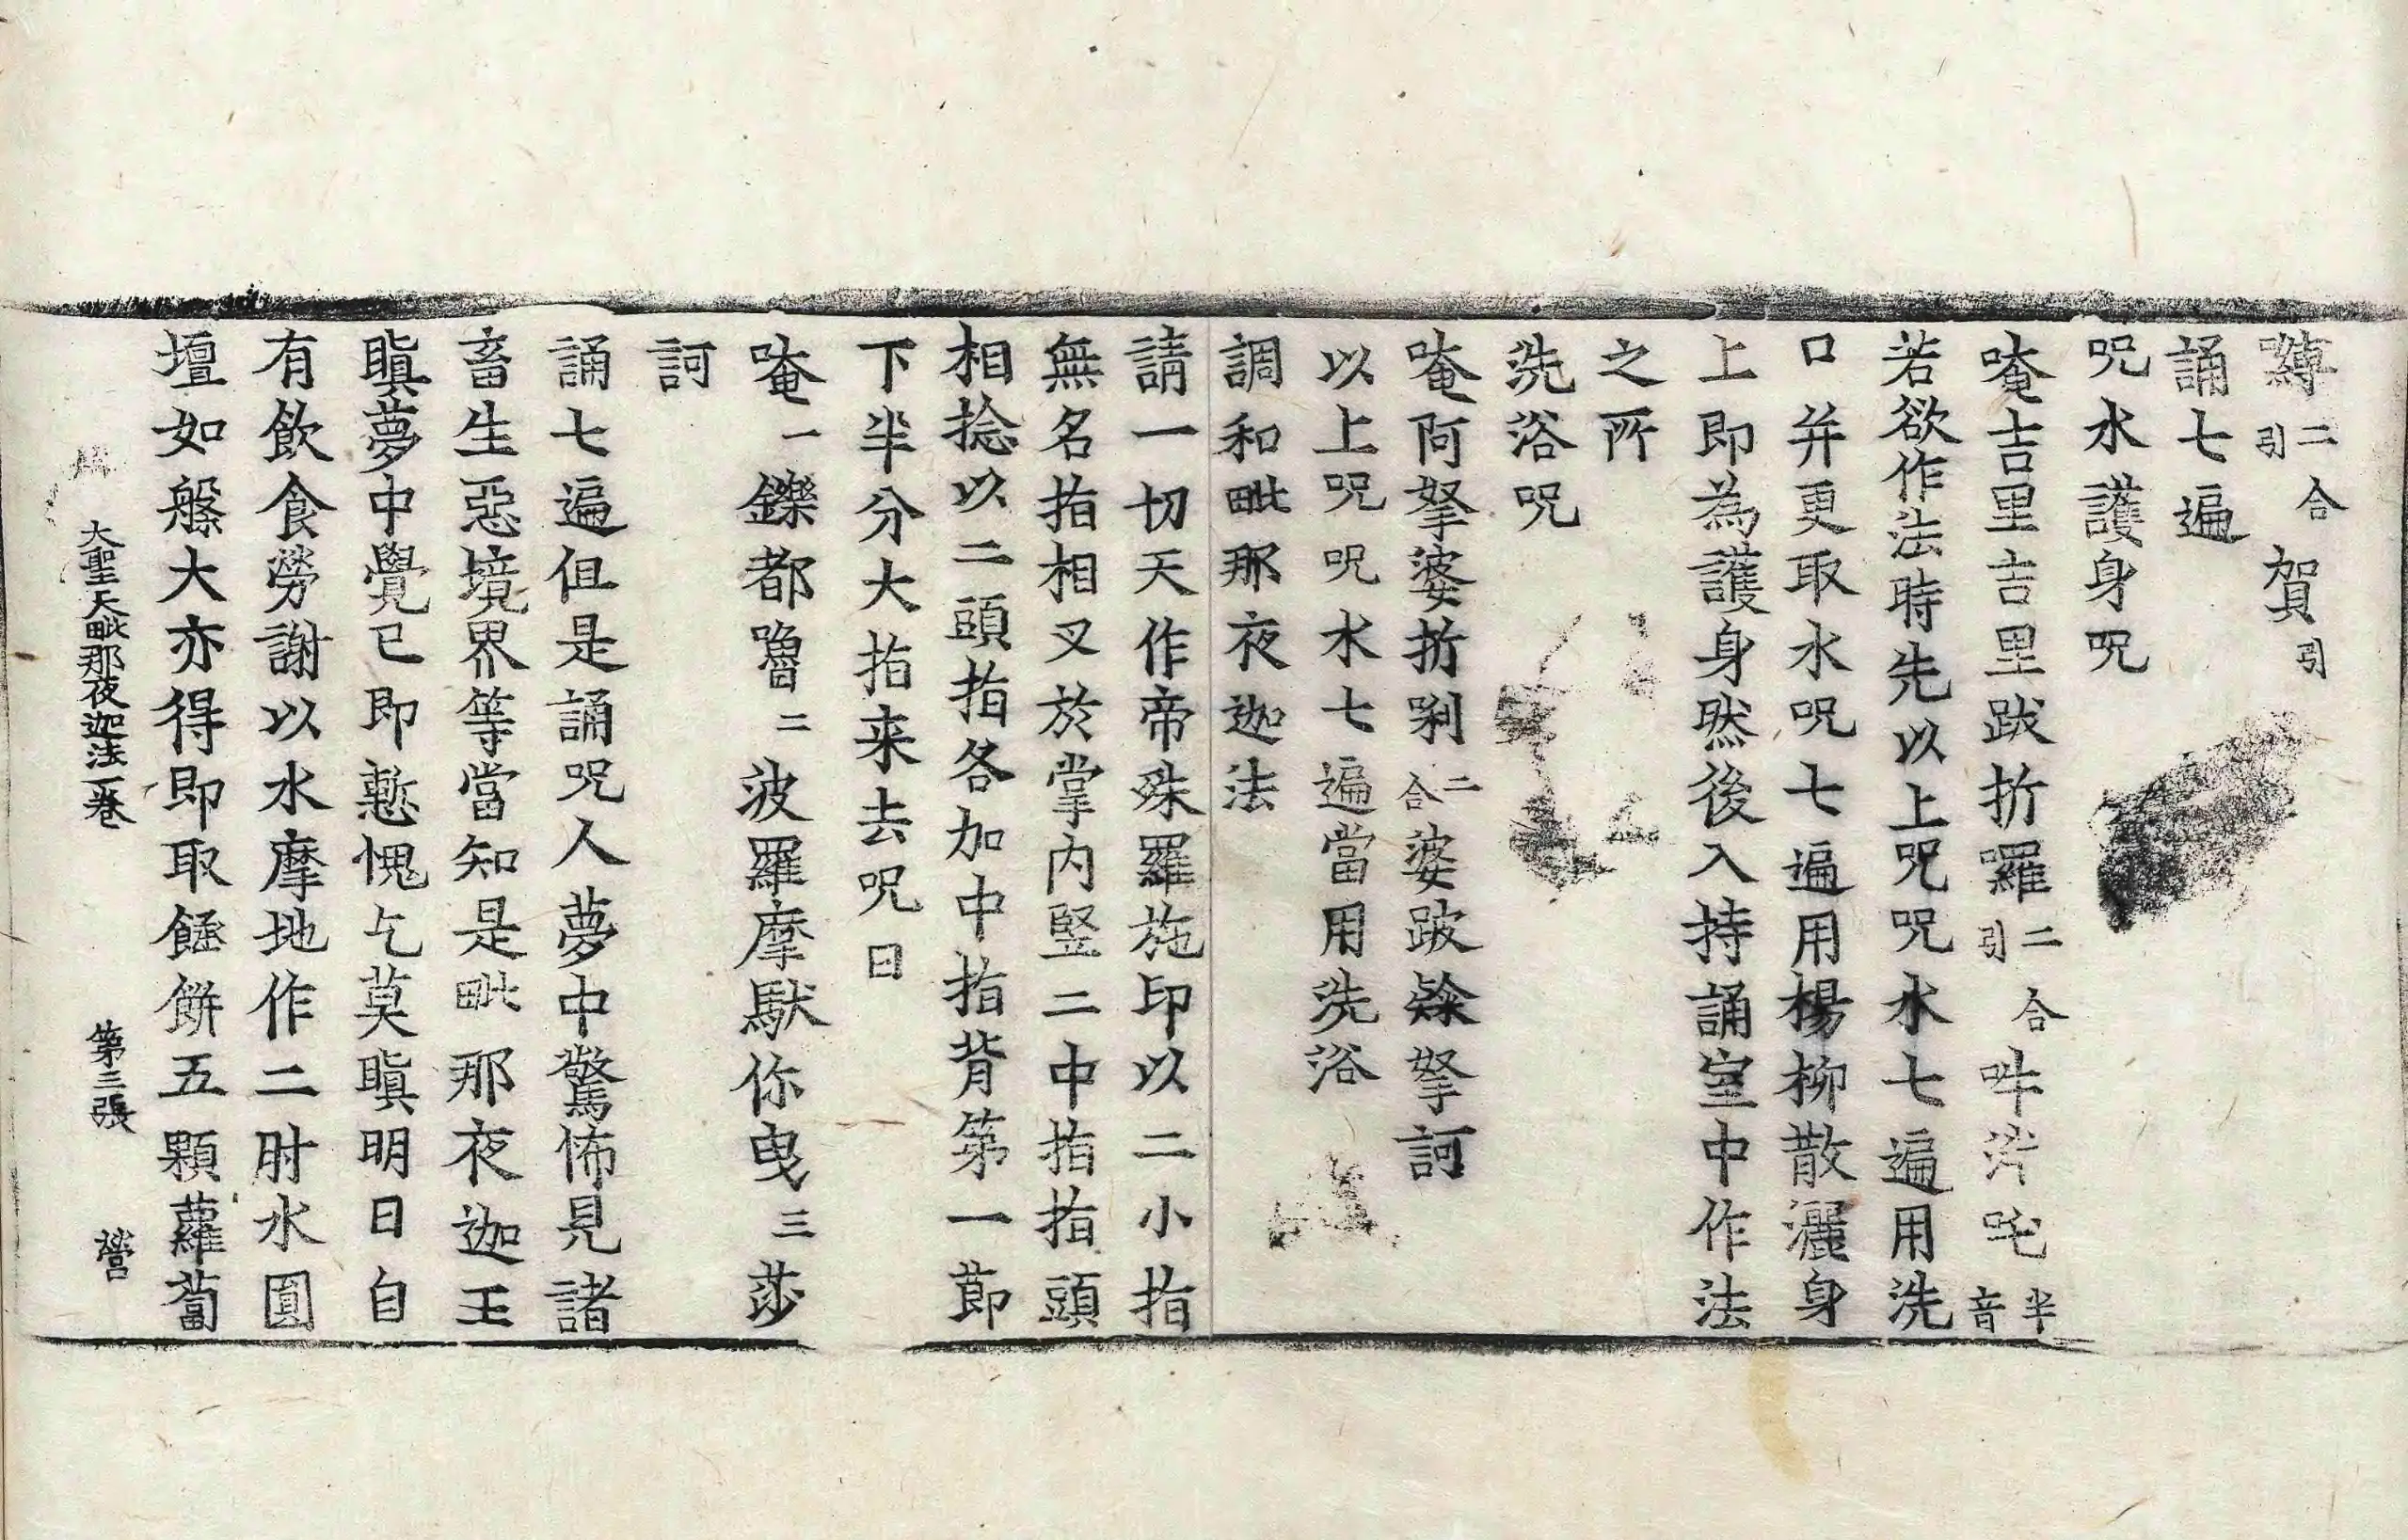 嚩二合引賀引
誦七遍
呪水護身呪
唵吉里吉里跋折囉二合引吽泮吒半音
若欲作法時先以上呪呪水七遍用洗
口并更取水呪七遍用楊柳散灑身
上即為護身然後入持誦室中作法
之所
洗浴呪
唵阿拏婆折唎二合婆跛𡁠拏訶
以上呪呪水七遍當用洗浴
調和毗那夜迦法
請一切天作帝殊羅施印以二小指
無名指相叉於掌內竪二中指指頭
相捻以二頭指各加中指背第一節
下半分大指来去呪曰
唵一鑠都嚕二波羅摩馱你曳三莎
訶
誦七遍但是誦呪人夢中驚怖見諸
畜生惡境界等當知是毗那夜迦王
瞋夢中覺已即慙愧乞莫瞋明日自
有飲食勞謝以水摩地作二肘水圓
壇如盤大亦得即取𩜁餅五顆蘿蔔
大聖天毗那夜迦法一卷 第三張 營